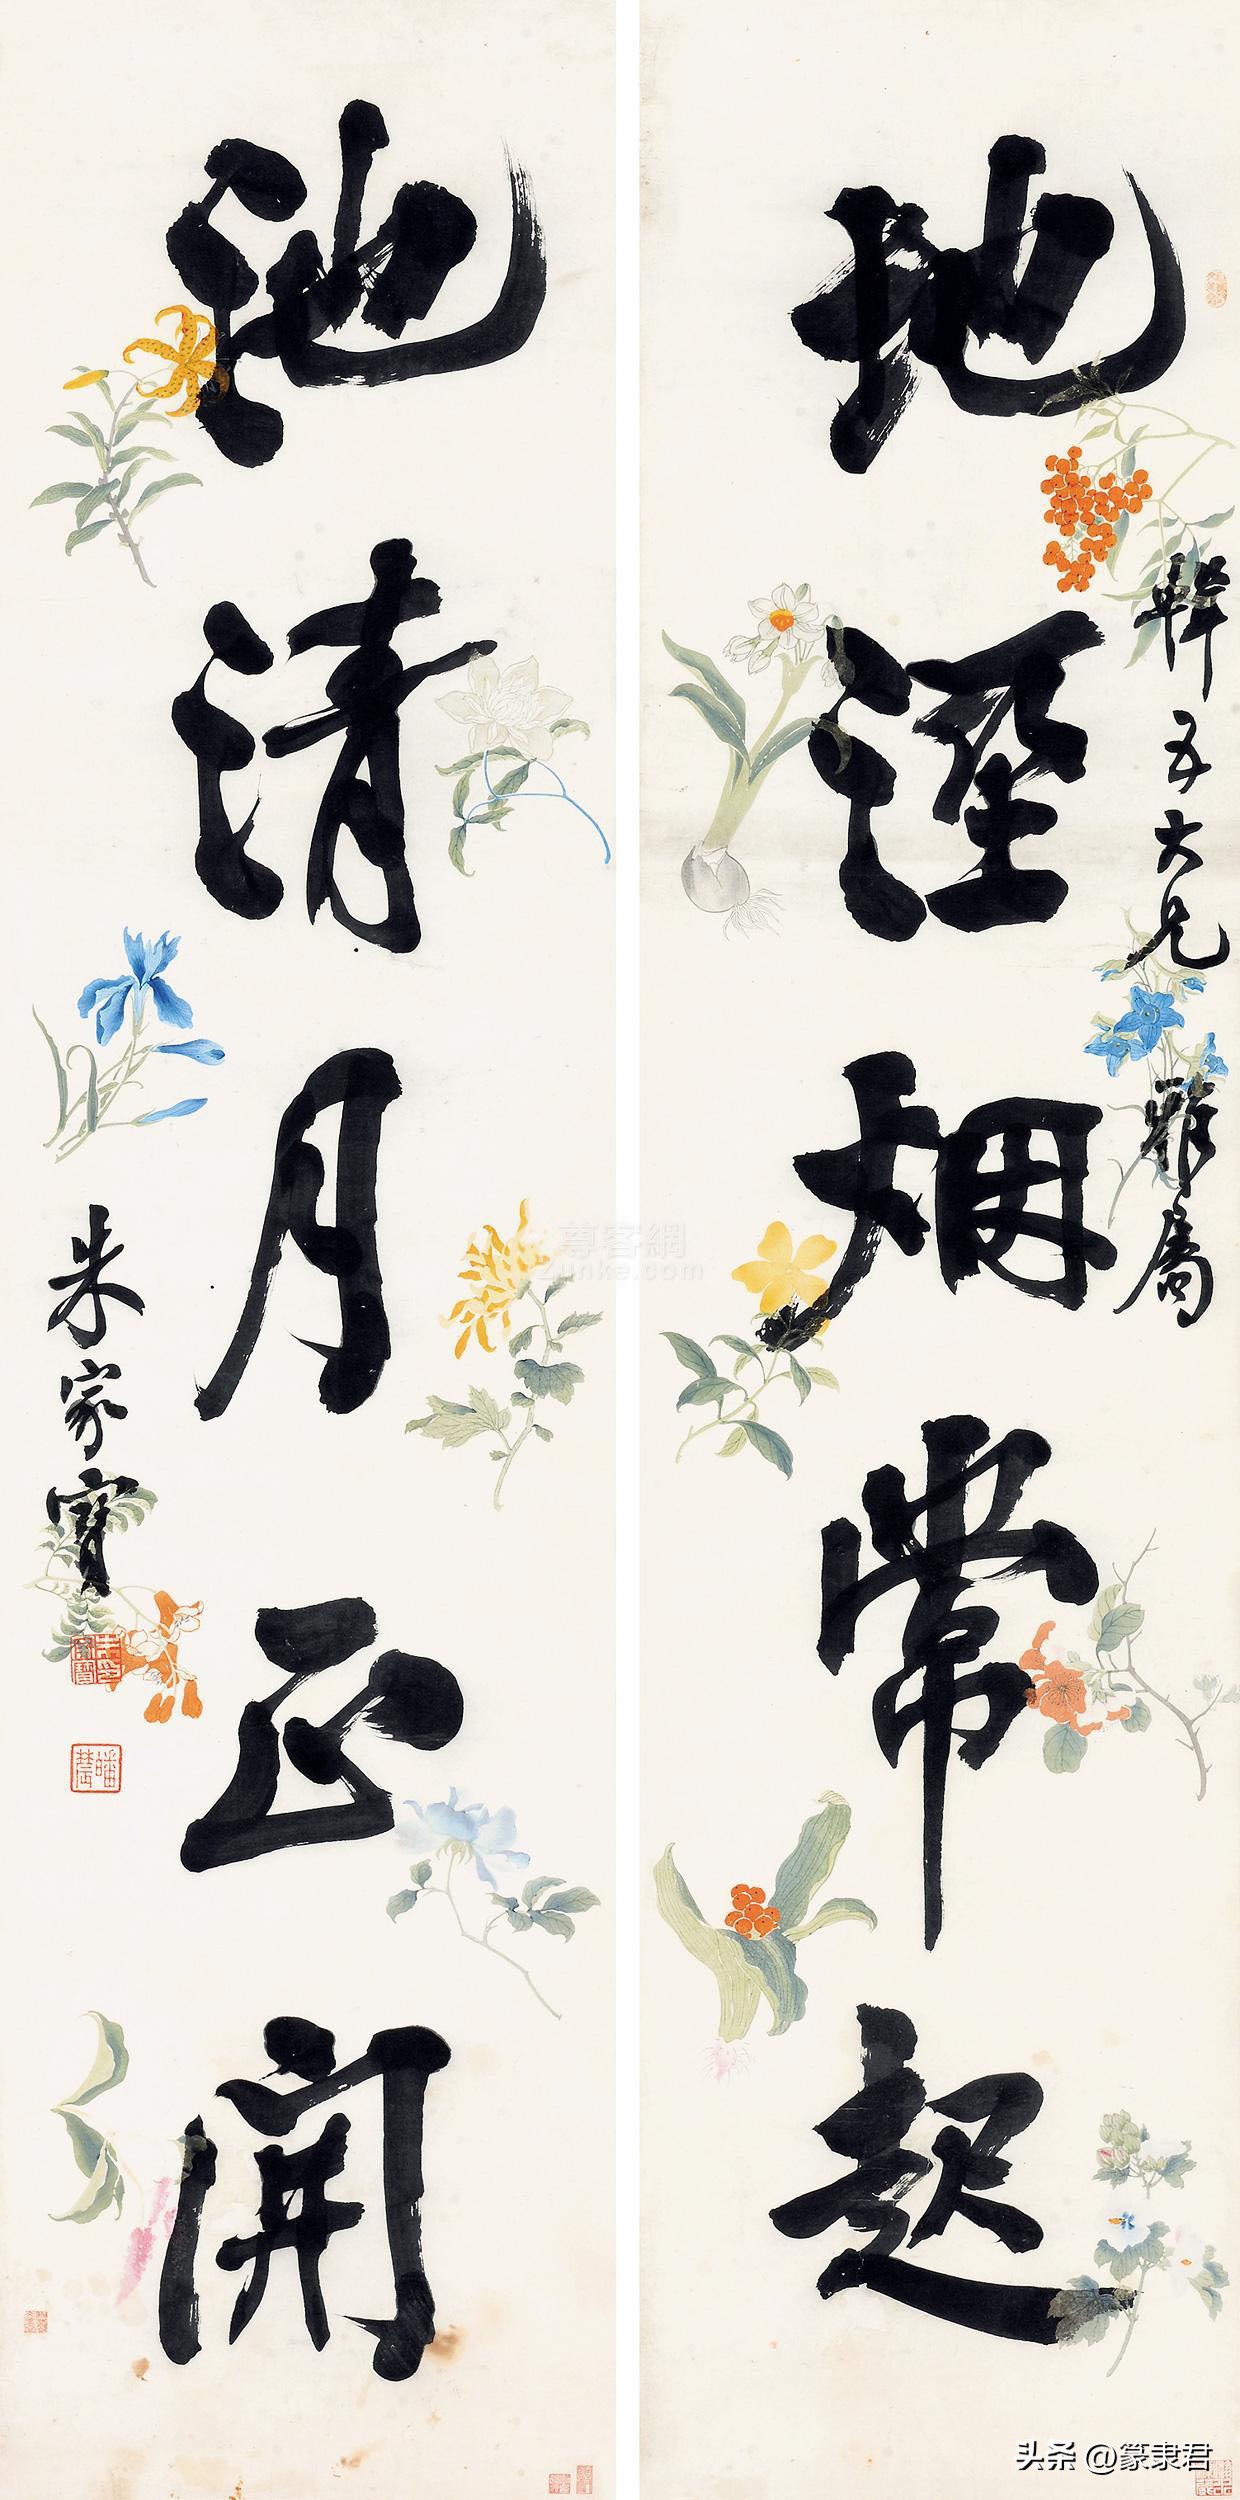 地溼烟常起
五大兄雅屬
池清月正開
朱家寶
尊客網
Zunke.com
头条 @篆隶君